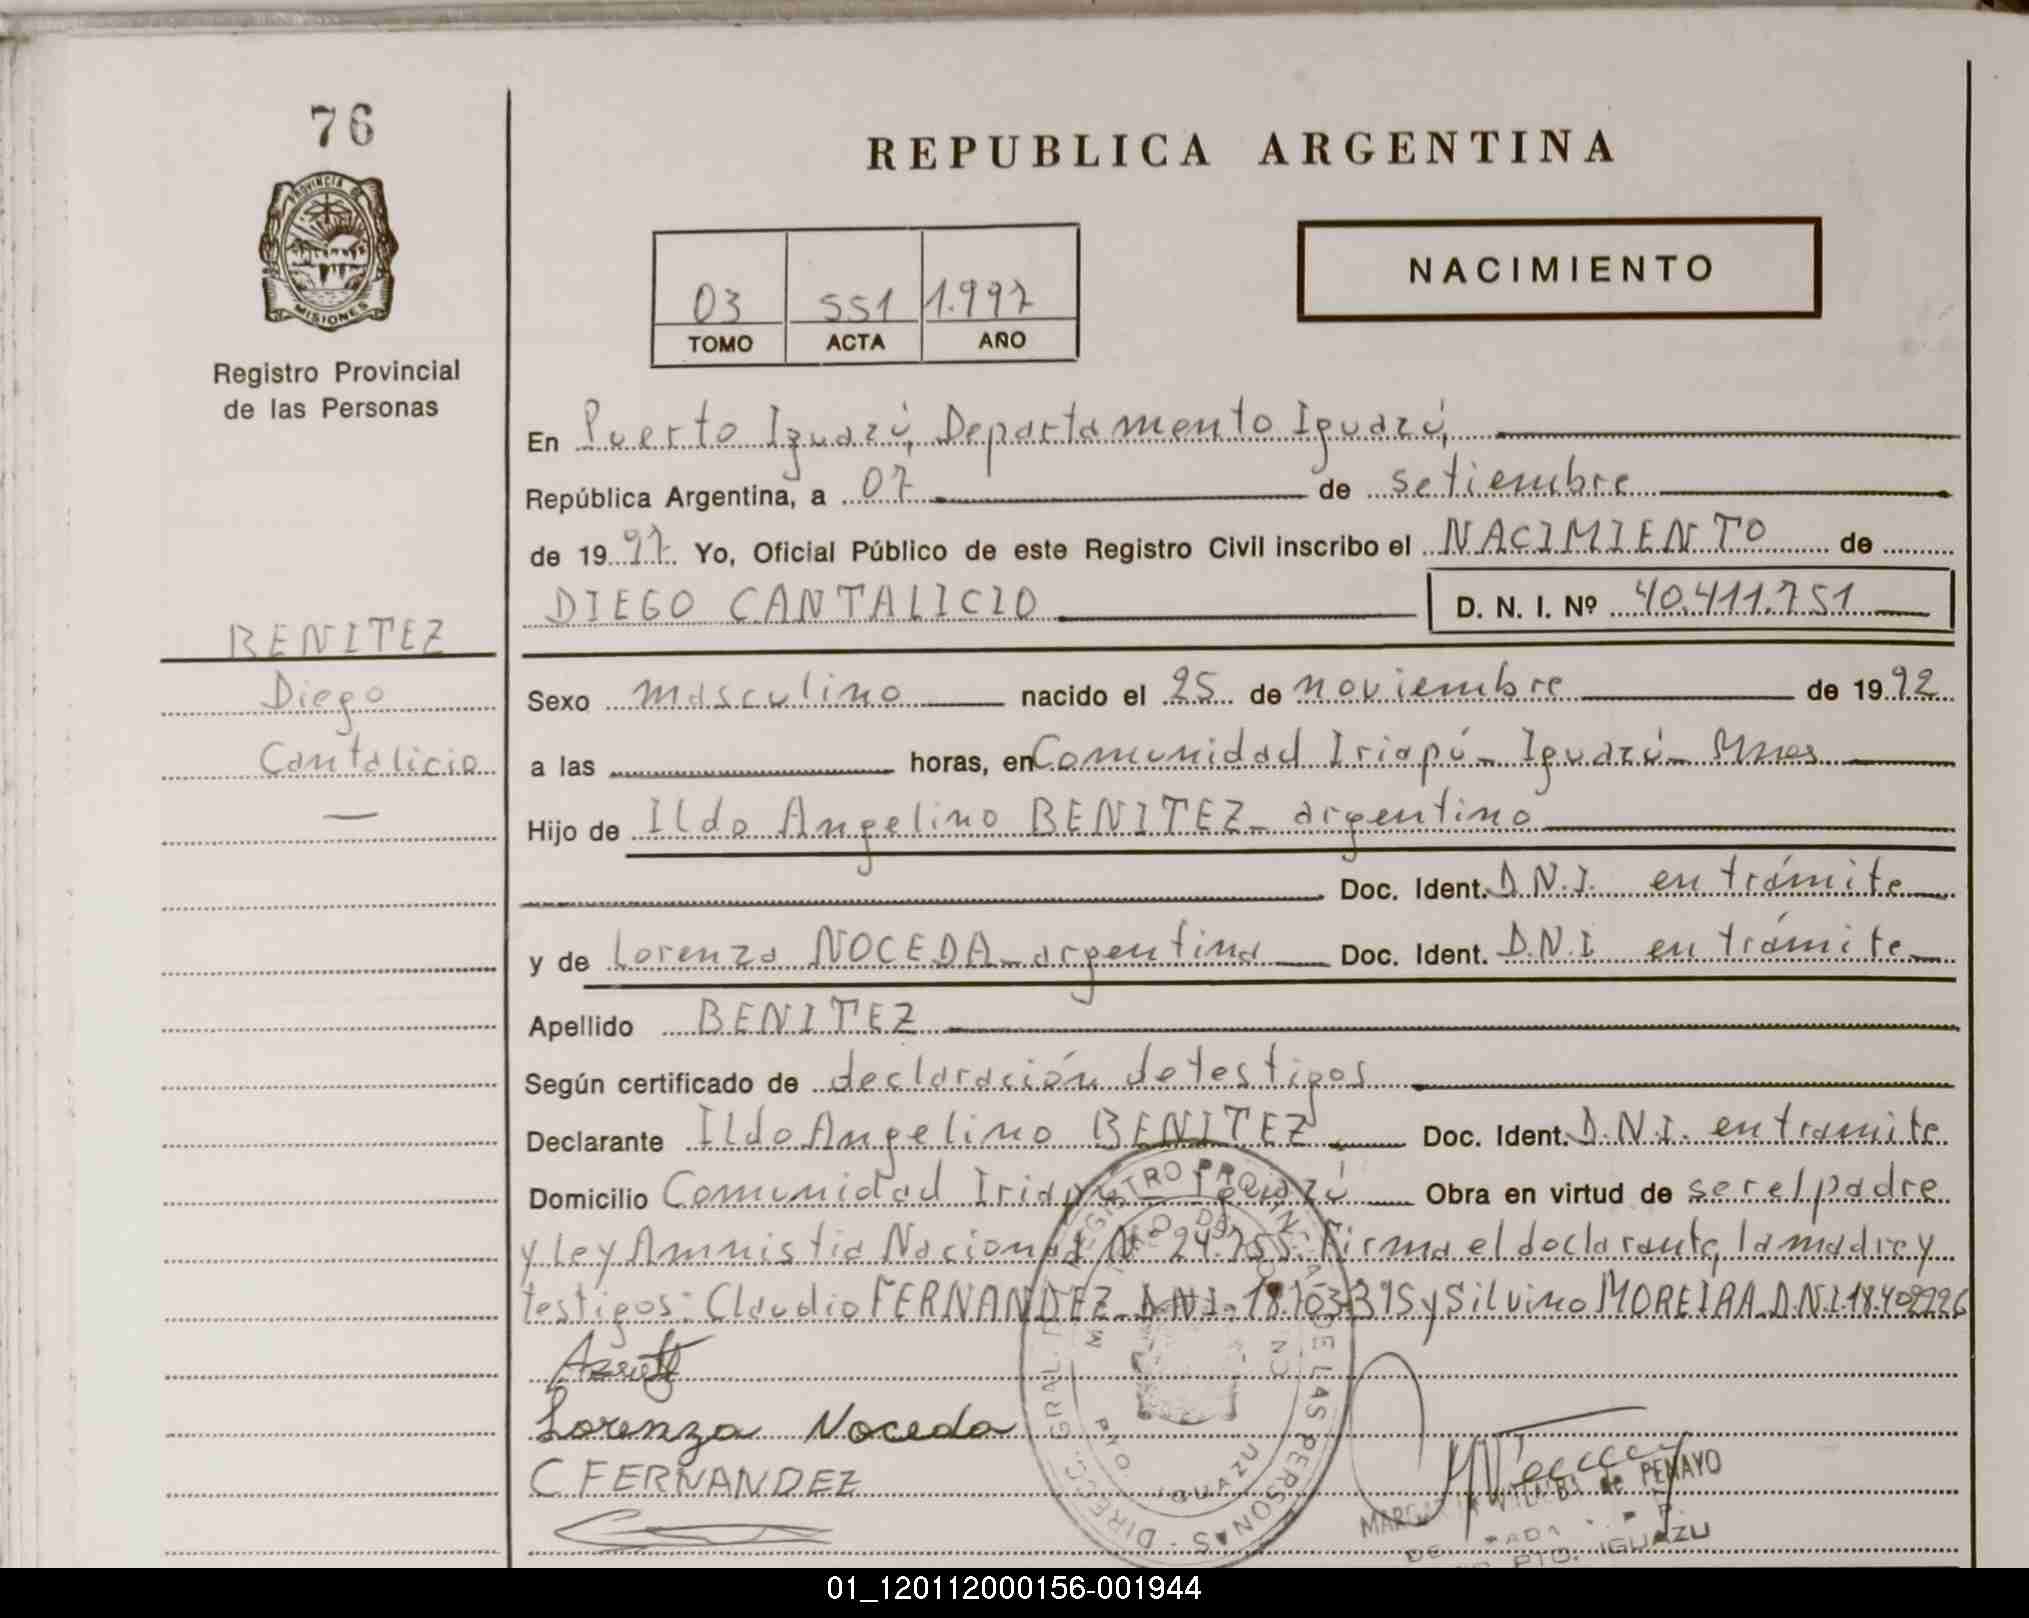 76
REPUBLICA ARGENTINA
PROVINCIA DE
MISIONES
Registro Provincial
de las Personas
03 551 1.997
TOMO ACTA AÑO
NACIMIENTO
En Puerto Iguazú, Departamento Iguazú,
República Argentina, a 07 de setiembre
de 1997. Yo, Oficial Público de este Registro Civil inscribo el NACIMIENTO de
DIEGO CANTALICIO D. N. I. Nº 40.411.751
BENITEZ
Diego
Cantalicio
Sexo masculino nacido el 25 de noviembre de 1992
a las horas, en Comunidad Iriapú - Iguazú - Mnes
Hijo de Ildo Angelino BENITEZ - argentino
Doc. Ident. D.N.I. en trámite
y de Lorenza NOCEDA - argentina Doc. Ident. D.N.I en trámite
Apellido BENITEZ
Según certificado de declaración de testigos
Declarante Ildo Angelino BENITEZ Doc. Ident. D.N.I. en tramite
Domicilio Comunidad Iriapú - Iguazú Obra en virtud de ser el padre
y Ley Amnistia Nacional Nº 24.755. Firma el declarante, la madre y
testigos: Claudio FERNANDEZ D.N.I. y Silvino MOREIRA D.N.I.
Lorenza Noceda
C FERNANDEZ
DIRECC. GRAL. REGISTRO PROVINCIAL DE LAS PERSONAS
IGUAZU
de PENAYO
PTO. IGUAZU
01_120112000156-001944